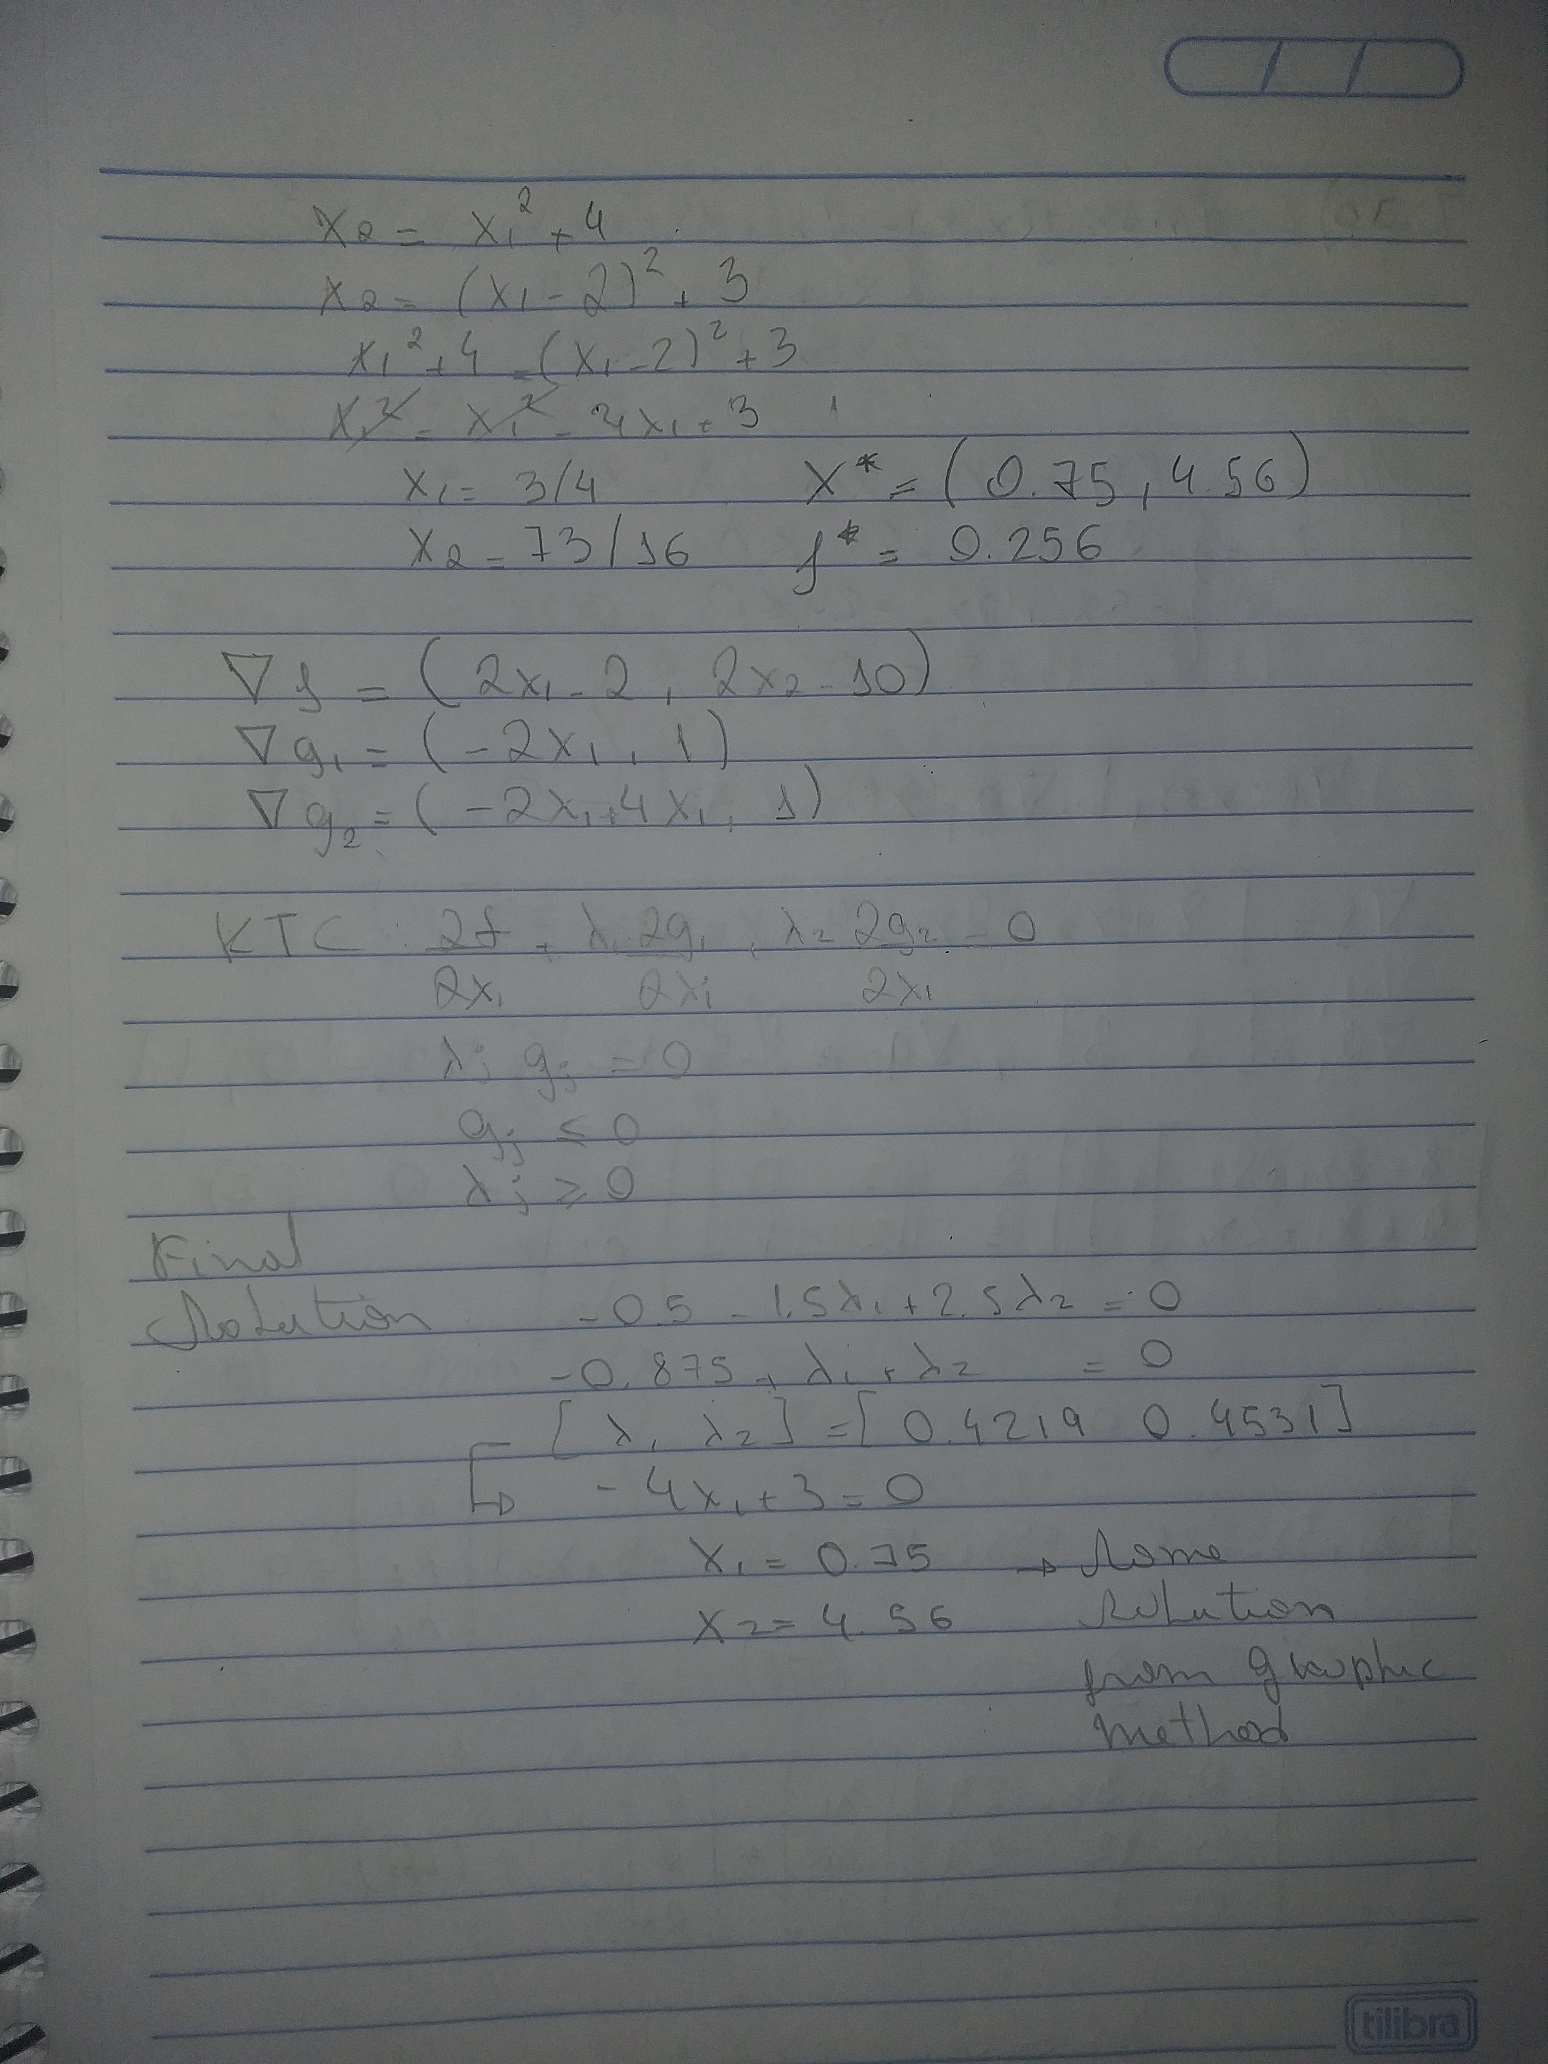 x2 = x1² + 4
x2 = (x1 - 2)² + 3
x1² + 4 = (x1 - 2)² + 3
x1² = x1² - 4x1 + 3
x1 = 3/4 X* = (0.75, 4.56)
x2 = 73/16 f* = 0.256
∇f = (2x1 - 2, 2x2 - 10)
∇g1 = (-2x1, 1)
∇g2 = (-2x1 + 4x1, 1)
KTC: ∂f/∂xi + λ1 ∂g1/∂xi + λ2 ∂g2/∂xi = 0
λj gj = 0
gj ≤ 0
λj ≥ 0
Final
Solution -0.5 - 1.5λ1 + 2.5λ2 = 0
-0.875 + λ1 + λ2 = 0
[λ1 λ2] = [0.4219 0.4531]
↳ -4x1 + 3 = 0
x1 = 0.75 → Same
x2 = 4.56 solution
from graphic
method
tilibra